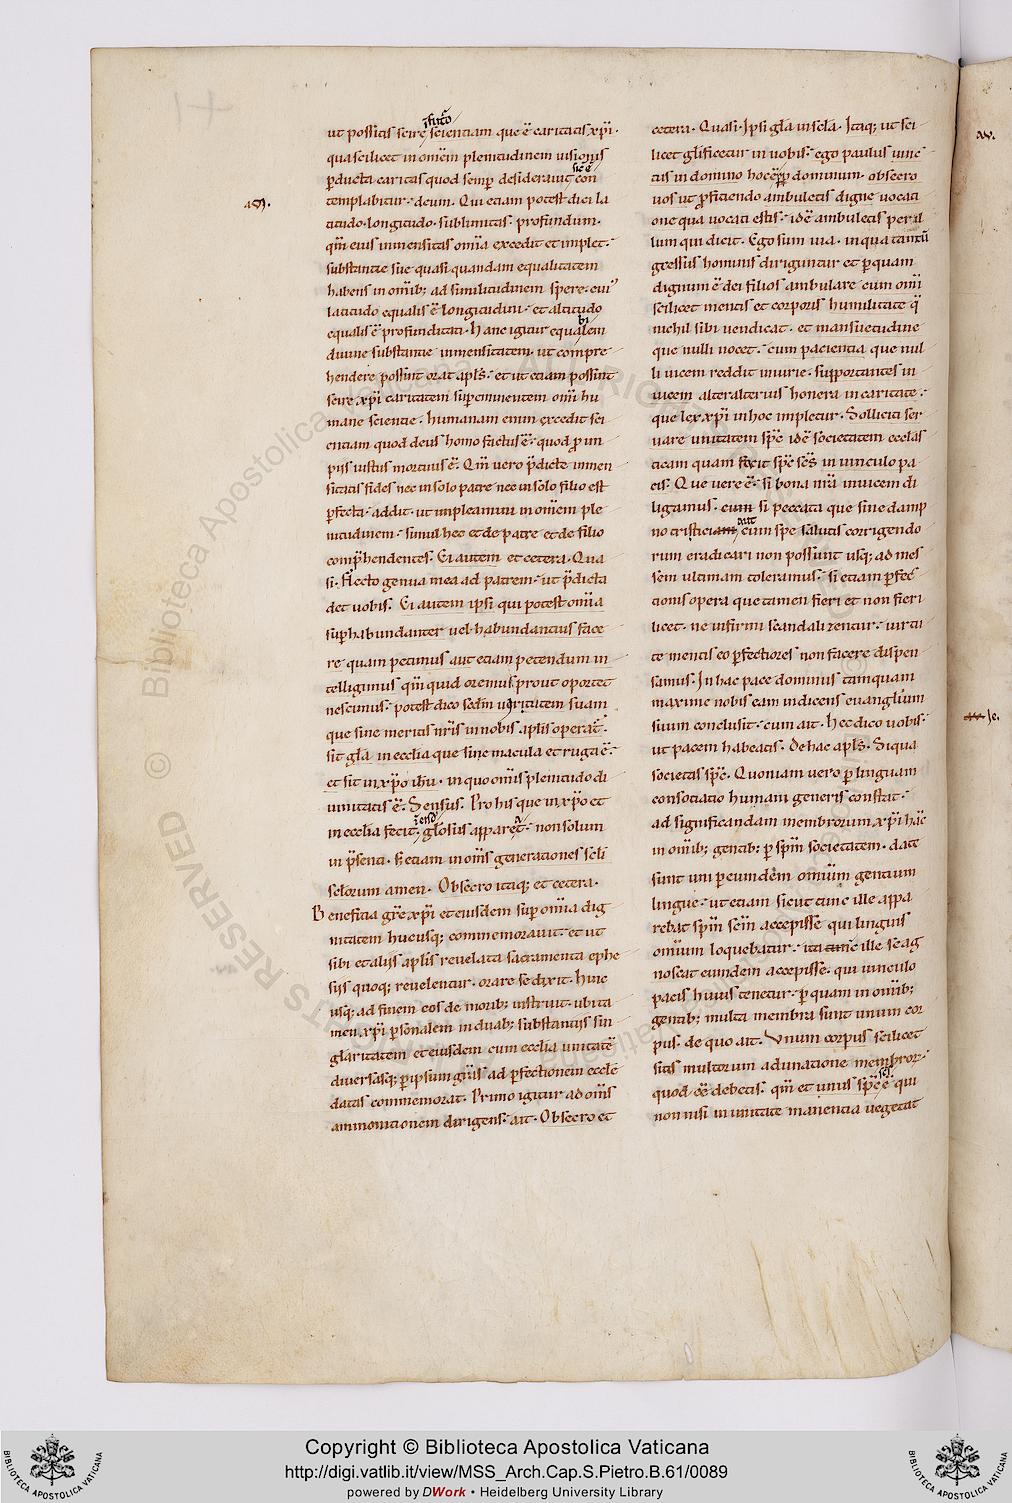 ut possitis scire scientiam que ē caritatis xp̄i.
qua scilicet in om̄em plenitudinem uisionis
p̄ducta caritas quod semp desiderauit con
templabitur. deum. Qui etiam potest dici la
titudo. longitudo. sublimitas. profundum.
qm̄ eius inmensitas om̄ia excedit et implet.
substantie sue quasi quandam equalitatem
habens in omib; ad similitudinem spere. cui
latitudo equalis ē longitudini. et altitudo
equalis ē profunditati. Hanc igitur equalem
diuine substantie inmensitatem. ut compre
hendere possint orat apls. et ut etiam possint
scire xp̄i caritatem supeminentem om̄i hu
mane scientie. humanam enim excedit sci
entiam quod deus homo factus ē. quod p im
piis iustus mortuus ē. Qm̄ uero p̄dicte inmen
sitatis fides nec in solo patre nec in solo filio est
pfecta. addit. ut impleamini in om̄em ple
nitudinem. simul hec et de patre et de filio
comp̄hendentes. Ei autem et cetera. Qua
si. Flecto genua mea ad patrem. ut p̄dicta
det uobis. Ei autem ipsi qui potest om̄ia
suphabundanter uel habundantius face
re quam petimus aut etiam petendum in
telligimus qm̄ quid oremus prout oportet
nescimus. potest dico sedm̄ uirtutem suam
que sine meritis nr̄is in nobis aplis operat̄.
sit gl̄a in ecclia que sine macula et ruga ē.
et sit in xp̄o ihū. in quo om̄is plenitudo di
uinitatis ē. Sensus. Pro his que in xp̄o et
in ecclia fecit. gl̄osus apparet. non solum
in p̄senti. s; etiam in om̄s generationes scl̄i
sclorum amen. Obsecro itaq; et cetera.
Beneficia gr̄e xp̄i et eiusdem sup om̄ia dig
nitatem hucusq; commemorauit. et ut
sibi et aliis aplis reuelata sacramenta ephe
siis quoq; reuelentur. orare se dixit. Hinc
usq; ad finem eos de morib; instruit. ubi ta
men xp̄i psonalem in duab; substantiis sin
glaritatem et eiusdem cum ecclia unitatē
diuersasq; p ipsum gr̄as ad pfectionem eccl̄e
datas commemorat. Primo igitur ad om̄s
ammonitionem dirigens. ait. Obsecro et
cetera. Quasi. Ipsi gl̄a in scl̄a. Itaq; ut sci
licet gl̄ificetur in uobis. ego paulus uinc
tus in domino hoc ē pp dominum. obsecro
uos ut pficiendo ambuletis digne uocati
one qua uocati estis. id ē ambuletis per il
lum qui dicit. Ego sum uia. in qua tantū
gressus hominis diriguntur et p quam
dignum ē dei filios ambulare cum om̄i
scilicet mentis et corporis humilitate q̄
nichil sibi uendicat. et mansuetudine
que nulli nocet. cum pacientia que nul
li uicem reddit iniurie. supportantes in
uicem alter alterius honera in caritate.
que lex xp̄i in hoc impletur. Solliciti ser
uare unitatem sp̄c id ē societatem eccl̄as
ticam quam fecit sp̄c sc̄s in uinculo pa
cis. Que uere ē. si bona nr̄a inuicem di
ligamus. cum si peccata que sine damp
no tristiciam cum spe salutis corrigendo
rum eradicari non possunt usq; ad mes
sem ultimam toleramus. si etiam pfec
tionis opera que tamen fieri et non fieri
licet. ne infirmi scandalizentur. uirtu
te mentis eo pfectiores non facere dispen
samus. In hac pace dominus tamquam
maxime nobis eam indicens euanglium
suum conclusit. cum ait. Hec dico uobis.
ut pacem habeatis. De hac apls. Si qua
societas sp̄c. Quoniam uero p linguam
consociatio humani generis constat.
ad significandam membrorum xp̄i hāc
in omib; gentib; p sp̄m societatem. date
sunt uni p eumdem omnium gentium
lingue. ut etiam sicut tunc ille appa
rebat sp̄m scm̄ accepisse qui linguis
omnium loquebatur. ita tunc ille se ag
noscat eumdem accepisse. qui uinculo
pacis huius tenetur. p quam in omib;
gentib; multa membra sunt unum cor
pus. de quo ait. Unum corpus scilicet
sitis multorum adunatione membror.
quod ēē debetis. qm̄ et unus sp̄c ē qui
non nisi in unitate manentia uegetat
Copyright © Biblioteca Apostolica Vaticana
http://digi.vatlib.it/view/MSS_Arch.Cap.S.Pietro.B.61/0089
powered by DWork • Heidelberg University Library